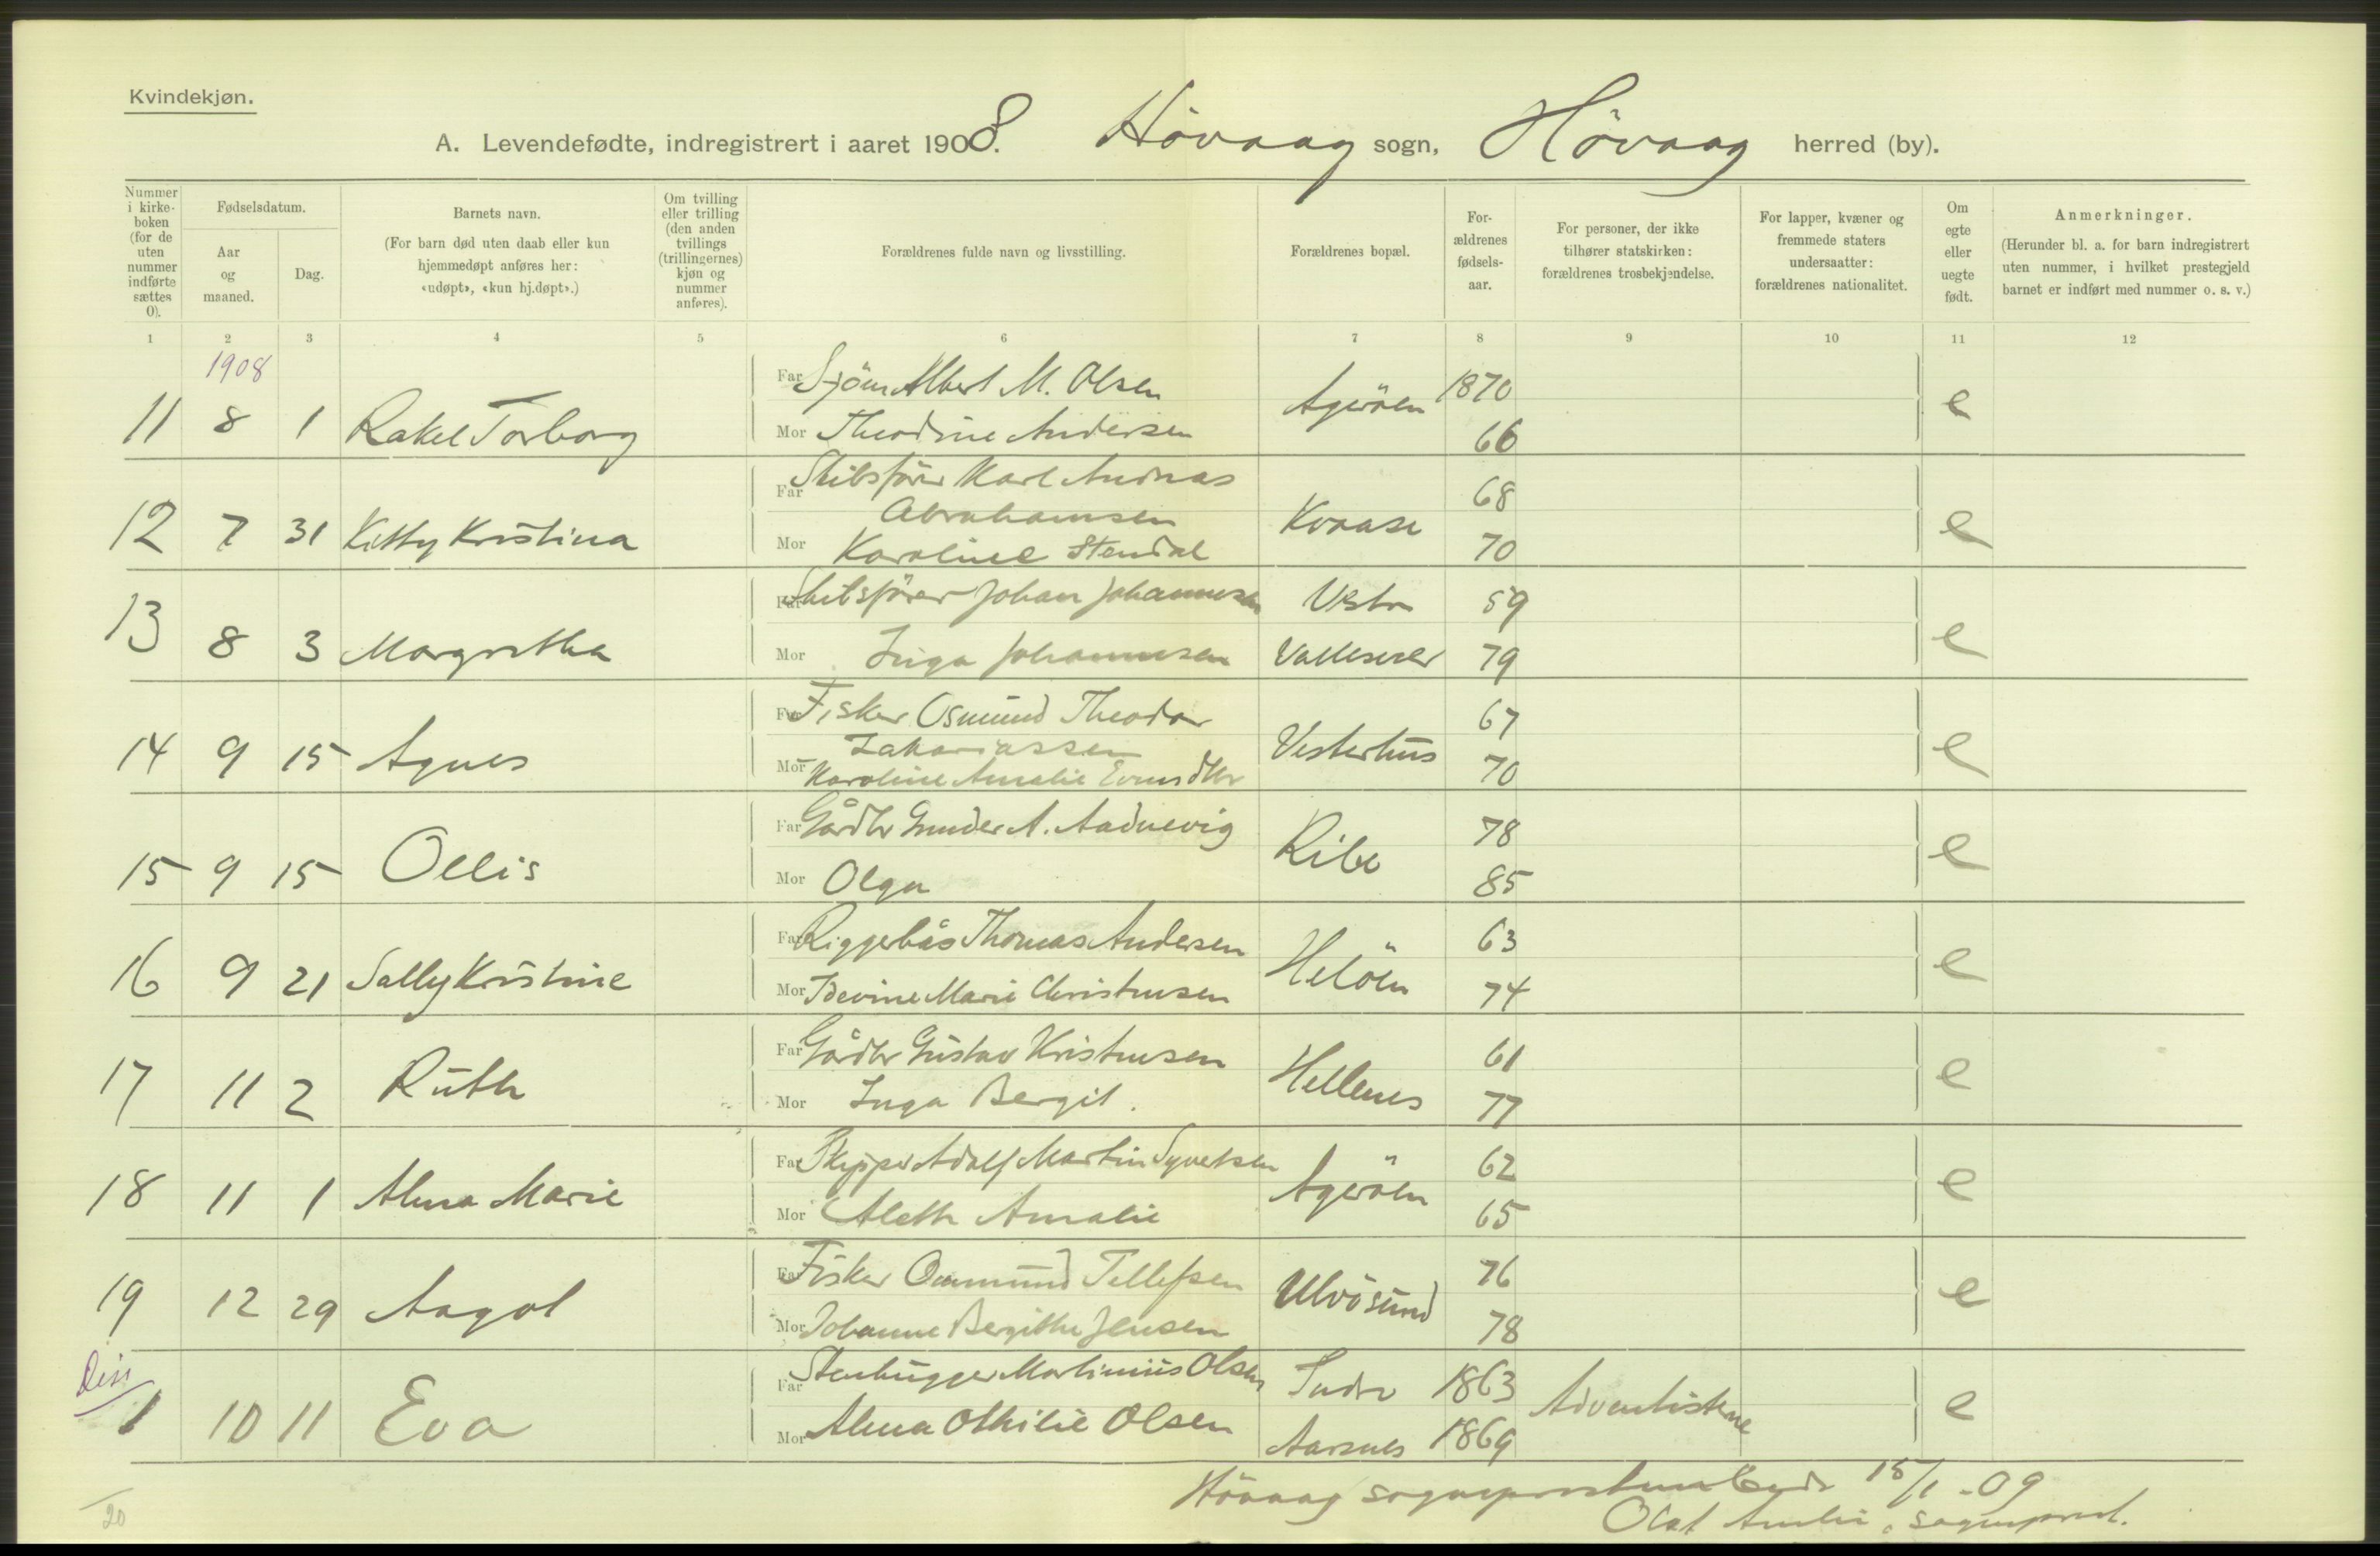 Kvindekjøn.
A. Levendefødte, indregistrert i aaret 1908. Hövaag sogn, Hövaag herred (by).
Nummer i kirkeboken (for de uten nummer indførte sættes 0).
Fødselsdatum.
Aar og maaned.
Dag.
Barnets navn.
(For barn død uten daab eller kun hjemmedøpt anføres her: «udøpt», «kun hj.døpt».)
Om tvilling eller trilling (den anden tvillings (trillingernes) kjøn og nummer anføres).
Forældrenes fulde navn og livsstilling.
Forældrenes bopæl.
Forældrenes fødselsaar.
For personer, der ikke tilhører statskirken: forældrenes trosbekjendelse.
For lapper, kvæner og fremmede staters undersaatter: forældrenes nationalitet.
Om egte eller uegte født.
Anmerkninger.
(Herunder bl. a. for barn indregistrert uten nummer, i hvilket prestegjeld barnet er indført med nummer o. s. v.)
1 2 3 4 5 6 7 8 9 10 11 12
1908
Far Sjöm Albert M. Olsen 1870
11 8 1 Rakel Torborg Ageröen e
Mor Theodine Andersen 66
Far Skibsförer Karl Andreas 68
Abrahamsen
12 7 31 Kitty Kristina Kvaase e
Mor Karoline Stendal 70
Far Skibsförer Johan Johannesen Vestre 59
13 8 3 Margretha e
Mor Inga Johannesen Vallesverd 79
Far Fisker Osmund Theodor 67
Zakariassen
14 9 15 Agnes Vesterhus e
Mor Karoline Amalie 70
Far Gårdbr Gunder A. Aadnevig 78
15 9 15 Ollis Ribe e
Mor Olga 85
Far Riggerbås Thomas Andersen 63
16 9 21 Sally Kristine Helöen e
Mor Tevine Marie Christensen 74
Far Gårdbr Gustav Kristensen 61
17 11 2 Ruth Hellenes e
Mor Inga Bergit. 77
Far Skipper Adolf Martin Syvertsen 62
18 11 1 Alma Marie Ageröen e
Mor Aleth Amalie 65
Far Fisker Osmund Tellefsen 76
19 12 29 Aagot Ulvösund e
Mor Johanne Bergithe Jensen 78
Diss Far Stenhugger Martinius Olsen Indre 1863
1 10 11 Eva Adventisterne e
Mor Alma Othilie Olsen Aarsnes 1869
Hövaag sogneprestembede 15/1 - 09
20
Olaf sogneprest.